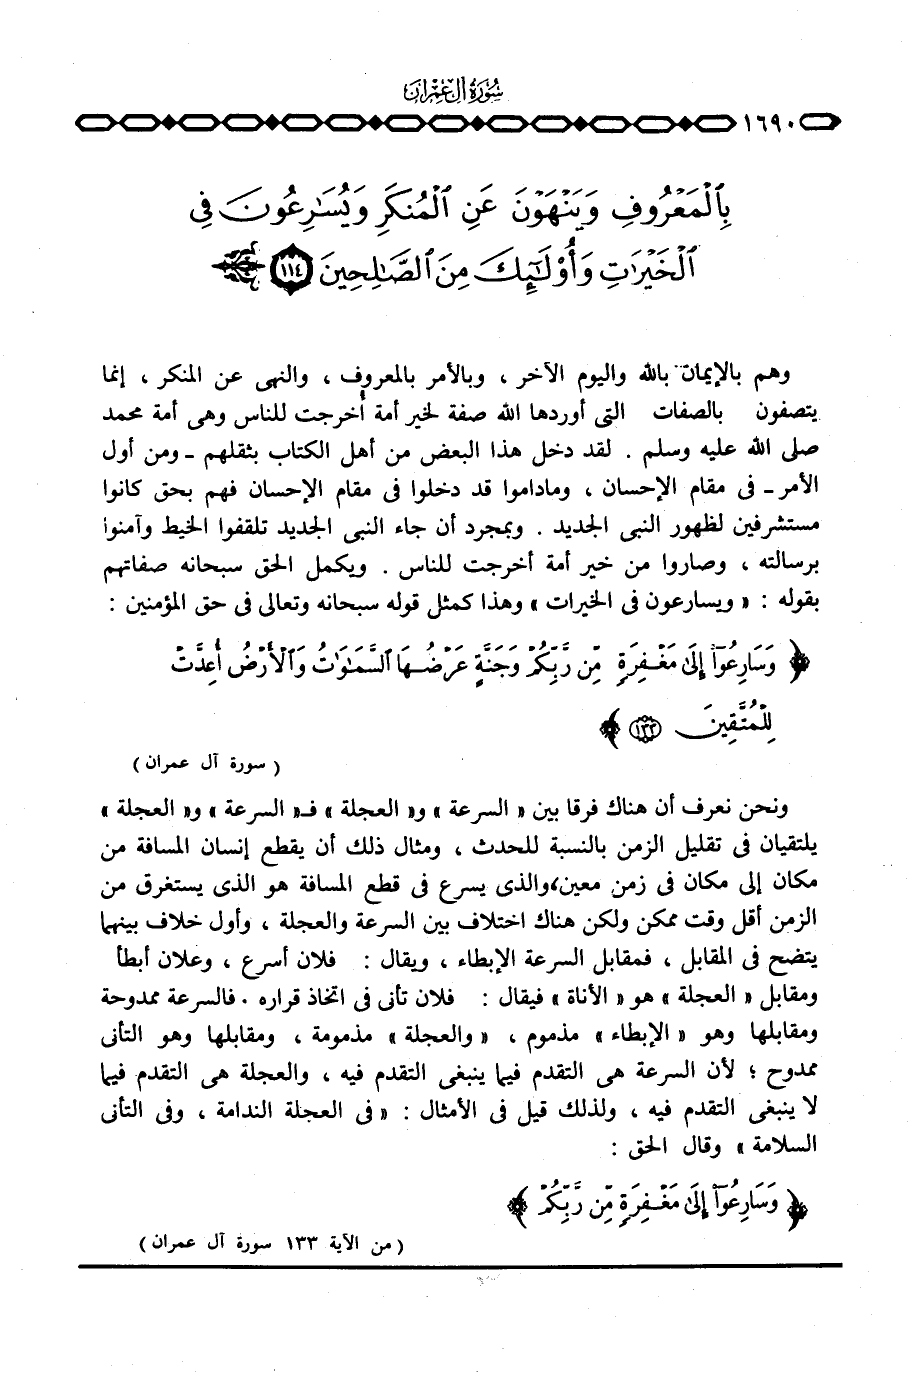 سُورَةُ آلِ عِمْرَانَ
١٦٩٠
بِٱلْمَعْرُوفِ وَيَنْهَوْنَ عَنِ ٱلْمُنكَرِ وَيُسَٰرِعُونَ فِى
ٱلْخَيْرَٰتِ وَأُو۟لَٰٓئِكَ مِنَ ٱلصَّٰلِحِينَ ١١٤
وهم بالإيمان بالله واليوم الآخر ، وبالأمر بالمعروف ، والنهى عن المنكر ، إنما
يتصفون بالصفات التى أوردها الله صفة لخير أمة أُخرجت للناس وهى أمة محمد
صلى الله عليه وسلم . لقد دخل هذا البعض من أهل الكتاب بثقلهم - ومن أول
الأمر - فى مقام الإحسان ، وماداموا قد دخلوا فى مقام الإحسان فهم بحق كانوا
مستشرفين لظهور النبى الجديد . وبمجرد أن جاء النبى الجديد تلقفوا الخيط وآمنوا
برسالته ، وصاروا من خير أمة أخرجت للناس . ويكمل الحق سبحانه صفاتهم
بقوله : « ويسارعون فى الخيرات » وهذا كمثل قوله سبحانه وتعالى فى حق المؤمنين :
﴿ وَسَارِعُوٓا۟ إِلَىٰ مَغْفِرَةٍ مِّن رَّبِّكُمْ وَجَنَّةٍ عَرْضُهَا ٱلسَّمَٰوَٰتُ وَٱلْأَرْضُ أُعِدَّتْ
لِلْمُتَّقِينَ ١٣٣ ﴾
( سورة آل عمران )
ونحن نعرف أن هناك فرقا بين « السرعة » و« العجلة » فـ« السرعة » و« العجلة »
يلتقيان فى تقليل الزمن بالنسبة للحدث ، ومثال ذلك أن يقطع إنسان المسافة من
مكان إلى مكان فى زمن معين،والذى يسرع فى قطع المسافة هو الذى يستغرق من
الزمن أقل وقت ممكن ولكن هناك اختلاف بين السرعة والعجلة ، وأول خلاف بينهما
يتضح فى المقابل ، فمقابل السرعة الإبطاء ، ويقال : فلان أسرع ، وعلان أبطأ
ومقابل « العجلة » هو « الأناة » فيقال : فلان تأنى فى اتخاذ قراره . فالسرعة ممدوحة
ومقابلها وهو « الإبطاء » مذموم ، « والعجلة » مذمومة ، ومقابلها وهو التأنى
ممدوح ؛ لأن السرعة هى التقدم فيما ينبغى التقدم فيه ، والعجلة هى التقدم فيما
لا ينبغى التقدم فيه ، ولذلك قيل فى الأمثال : « فى العجلة الندامة ، وفى التأنى
السلامة » وقال الحق :
﴿ وَسَارِعُوٓا۟ إِلَىٰ مَغْفِرَةٍ مِّن رَّبِّكُمْ ﴾
( من الآية ١٣٣ سورة آل عمران )